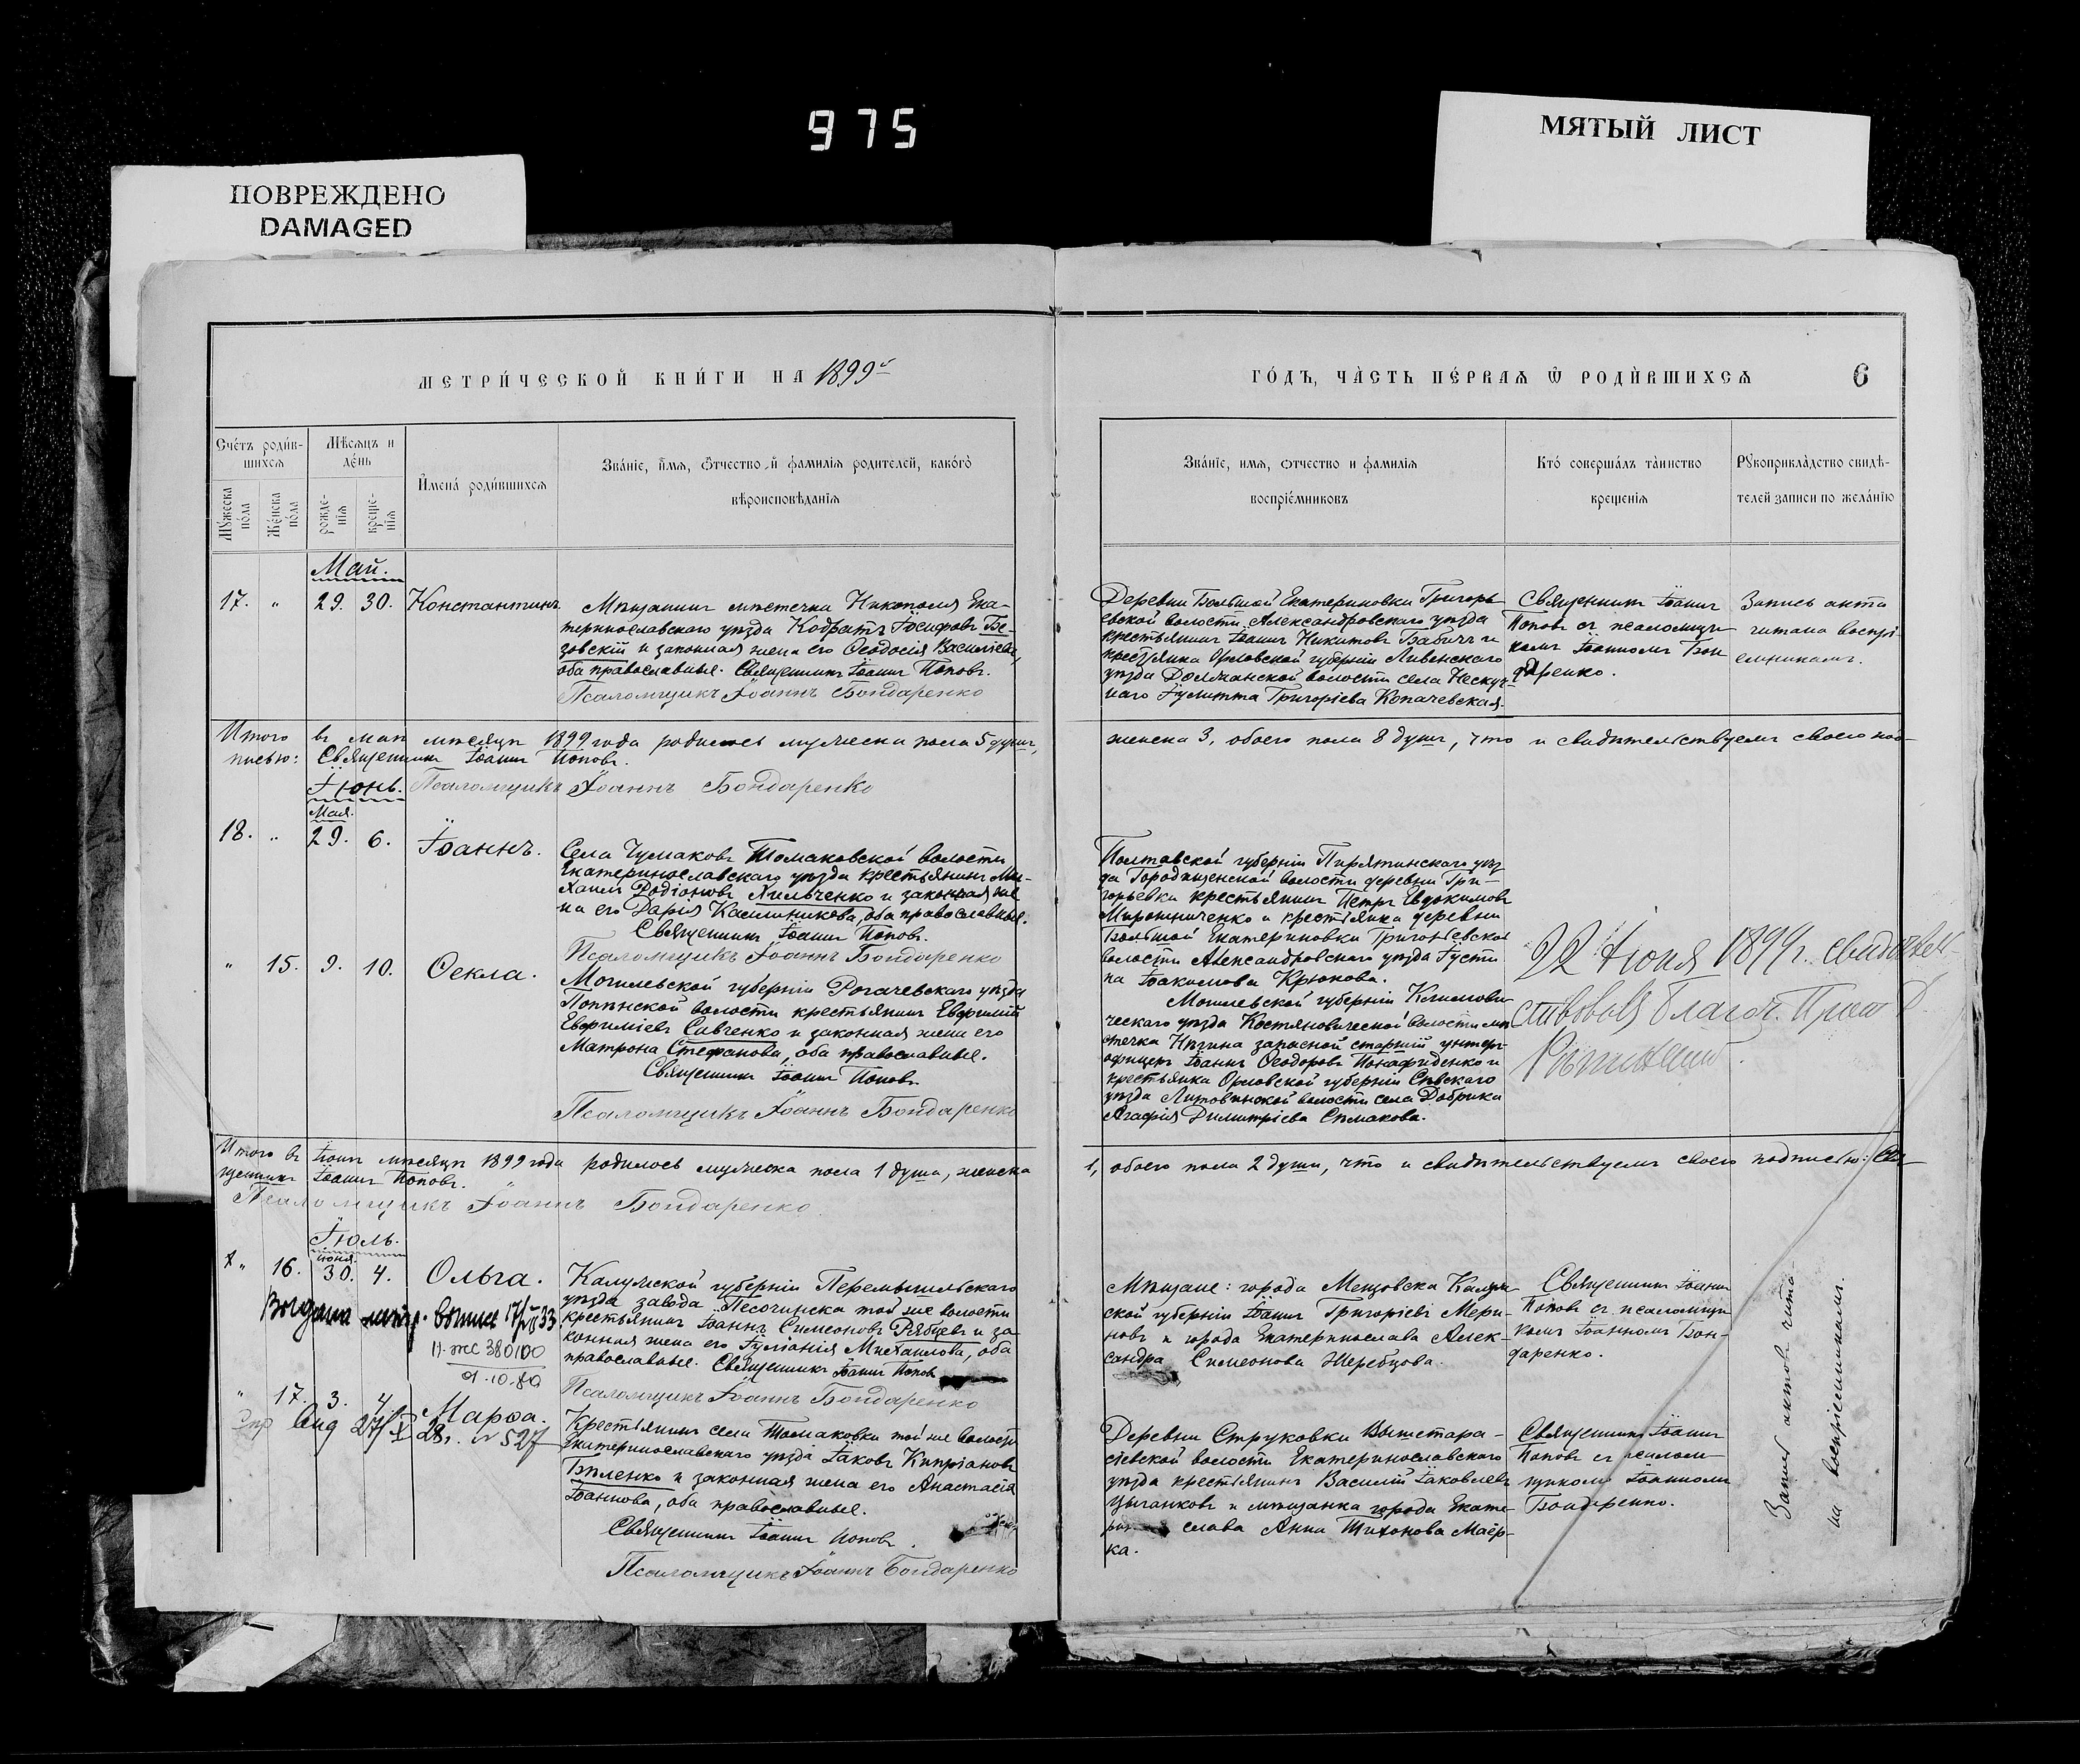 975
МЯТЫЙ ЛИСТ
ПОВРЕЖДЕНО
DAMAGED
МЕТРИ́ЧЕСКОЙ КНИ́ГИ НА 1899й
ГО́ДЪ, ЧА́СТЬ ПЕ́РВАѦ Ѡ РОДИ́ВШИХСѦ
6
Сче́тъ роди́в-
шихсѧ
Мѣсѧцъ и
де́нь
Му́жеска
по́ла
Же́нска
по́ла
рожде-
нїѧ
креще-
нїѧ
И҆мена́ роди́вшихсѧ
Зва́нїе, и҆́мѧ, ѻ҆́тчество и҆ фамилїѧ родителей, како́го
вѣроисповѣ́данїѧ
Зва́нїе, имѧ, ѻтчество и фамилїѧ
воспрїе́мниковъ
Кто́ соверша́лъ та́инство
крещенїѧ
Рꙋкоприкла́дство свидѣ́-
телей записи по жела́нїю
Май.
17. „ 29. 30. Константинъ.
Мѣщанинъ мѣстечка Никополя Ека-
теринославскаго уѣзда Кодратъ Іосифовъ Бе-
зовскій и законная жена его Ѳеодосія Василіева,
оба православные. Священникъ Іоаннъ Поповъ.
Псаломщикъ Іоаннъ Бондаренко
Деревни Большой Екатериновки Григорь-
евской волости Александровскаго уѣзда
крестьянинъ Іоаннъ Никитовъ Бабичъ и
крестьянка Орловской губерніи Ливенскаго
уѣзда Должанской волости села Нескуч-
наго Іулитта Григоріева Копачевская.
Священникъ Іоаннъ
Поповъ съ псаломщи-
комъ Іоанномъ Бон-
даренко.
Запись акта
читана воспрі-
емникамъ.
Итого въ маѣ мѣсяцѣ 1899 года родилось мужеска пола 5 душъ,
женска 3, обоего пола 8 душъ, что и свидѣтельствуемъ своею под-
писью: Священникъ Іоаннъ Поповъ.
Псаломщикъ Іоаннъ Бондаренко
Іюнь.
Мая.
18. „ 29. 6. Іоаннъ.
Села Чумаковъ Томаковской волости,
Екатеринославскаго уѣзда крестьянинъ Ми-
хаилъ Родіоновъ Хильченко и законная же-
на его Дарія Каллиникова, оба православные.
Священникъ Іоаннъ Поповъ.
Псаломщикъ Іоаннъ Бондаренко
Полтавской губерніи Пирятинскаго уѣз-
да Городищенской волости деревни Гри-
горьевки крестьянинъ Петръ Евдокимовъ
Мирошниченко и крестьянка деревни
Большой Екатериновки Григорьевской
волости Александровскаго уѣзда Іусти-
на Іоакимова Крюкова.
„ 15. 9. 10. Ѳекла.
Могилевской губерніи Рогачевскаго уѣзда
крестьянинъ Евфимій
Евфиміевъ Савченко и законная жена его
Матрона Стефанова, оба православные.
Священникъ Іоаннъ Поповъ
Псаломщикъ Іоаннъ Бондаренко
Могилевской губерніи Климови-
ческаго уѣзда волости мѣ-
стечка запасной старшій унтеръ-
офицеръ Іоаннъ Ѳеодоровъ и
крестьянка Орловской губерніи Сѣвскаго
уѣзда Литовинской волости села Добрика
Агафія Димитріева Симакова.
22 Іюня 1899 г. свидѣтель-
ствовалъ Благоч.
Итого въ іюнѣ мѣсяцѣ 1899 года родилось мужеска пола 1 душа, женска
1, обоего пола 2 души, что и свидѣтельствуемъ своею подписью: Свя-
щенникъ Іоаннъ Поповъ.
Псаломщикъ Іоаннъ Бондаренко
Іюль.
іюня.
„ 16. 30. 4. Ольга.
Калужской губерніи Перемышльскаго
уѣзда завода Песоченска той же волости
крестьянинъ Іоаннъ Симеоновъ Рябцевъ и за-
конная жена его Іуліанія Михаилова, оба
православные. Священникъ Іоаннъ Поповъ
Псаломщикъ Іоаннъ Бондаренко
Мѣщане: города Мещовска Калуж-
ской губерніи Іоаннъ Григоріевъ Мери-
новъ и города Екатеринослава Алек-
сандра Симеонова Жеребцова.
Священникъ Іоаннъ
Поповъ съ псаломщи-
комъ Іоанномъ Бон-
даренко.
Запись актовъ чита-
на воспріемникамъ.
„ 17. 3. 4. Марѳа.
28 527
Крестьянинъ села Томаковки той же волости
Екатеринославскаго уѣзда Іаковъ Кипріановъ
Бѣленко и законная жена его Анастасія
Іоаннова, оба православные.
Священникъ Іоаннъ Поповъ.
Псаломщикъ Іоаннъ Бондаренко
Деревни Струковки Вышетара-
совской волости Екатеринославскаго
уѣзда крестьянинъ Василій Іаковлевъ
Цыганковъ и мѣщанка города Екате-
рино слава Анна Тихонова Маёр-
ка.
Священникъ Іоаннъ
Поповъ съ псалом-
щикомъ Іоанномъ
Бондаренко.